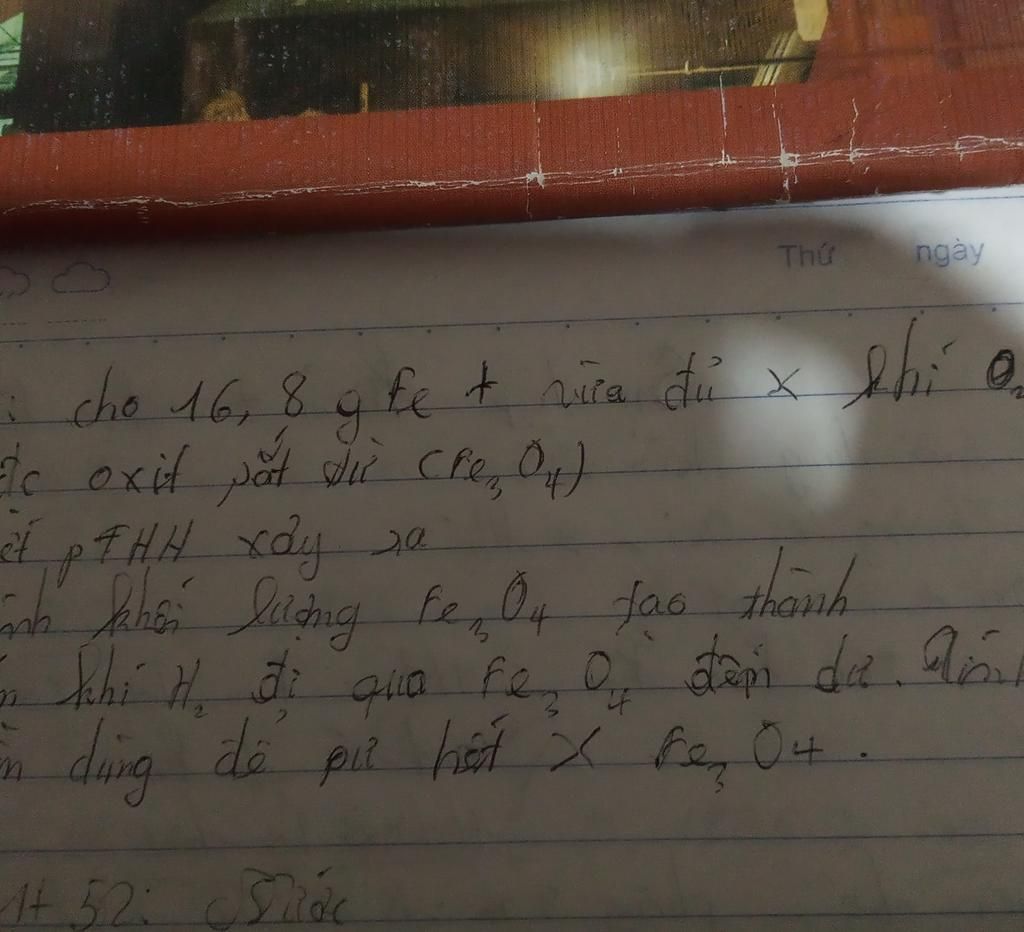 Thứ ngày
: cho 16,8 g Fe + vừa đủ x khí O₂
đc oxit sắt từ (Fe₃O₄)
PTHH xảy ra
khối lượng Fe₃O₄ tạo thành
khí H₂ đi qua Fe₃O₄ đến dư.
dùng để pứ hết x Fe₃O₄.
52: Nước